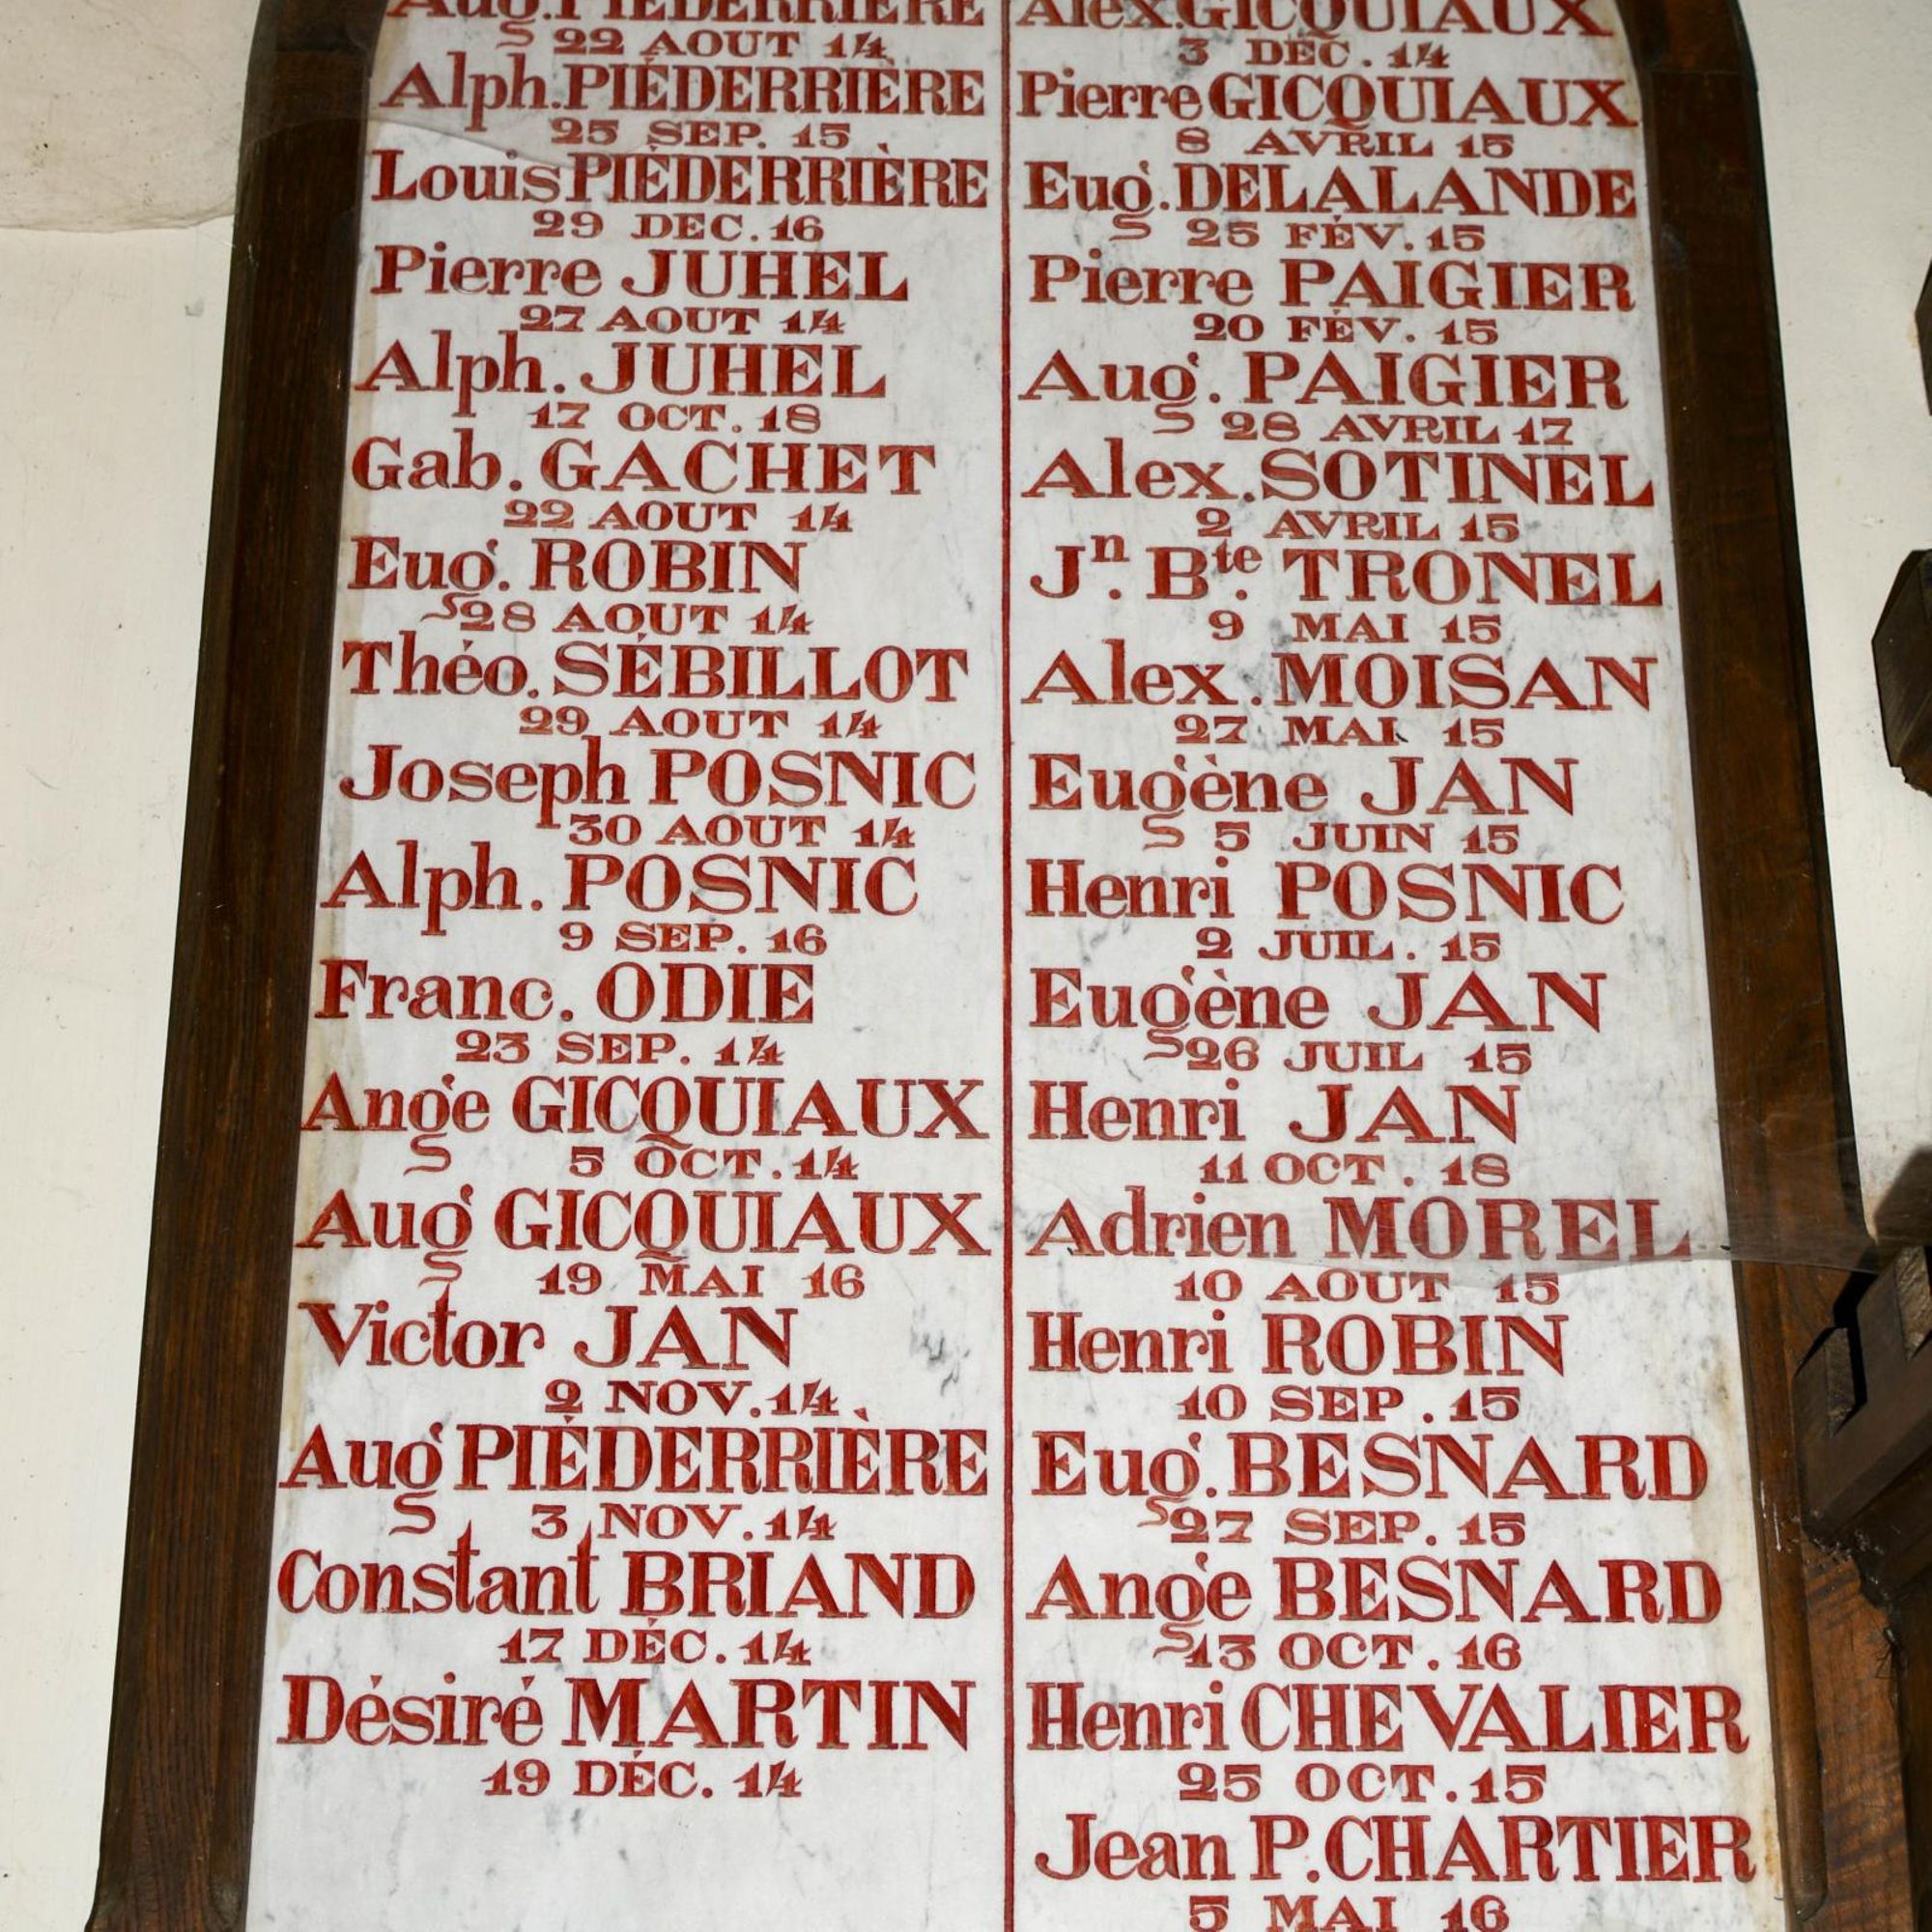 Aug. PIÉDERRIÈRE
22 AOUT 14
Alph. PIÉDERRIÈRE
25 SEP. 15
Louis PIÉDERRIÈRE
29 DEC. 16
Pierre JUHEL
27 AOUT 14
Alph. JUHEL
17 OCT. 18
Gab. GACHET
22 AOUT 14
Eug. ROBIN
28 AOUT 14
Théo. SÉBILLOT
29 AOUT 14
Joseph POSNIC
30 AOUT 14
Alph. POSNIC
9 SEP. 16
Franc. ODIE
23 SEP. 14
Ange GICQUIAUX
5 OCT. 14
Aug GICQUIAUX
19 MAI 16
Victor JAN
2 NOV. 14
Aug PIÉDERRIÈRE
3 NOV. 14
Constant BRIAND
17 DÉC. 14
Désiré MARTIN
19 DÉC. 14
Alex. GICQUIAUX
3 DEC. 14
Pierre GICQUIAUX
8 AVRIL 15
Eug. DELALANDE
25 FÉV. 15
Pierre PAIGIER
20 FÉV. 15
Aug. PAIGIER
28 AVRIL 17
Alex. SOTINEL
2 AVRIL 15
Jn. Bte. TRONEL
9 MAI 15
Alex. MOISAN
27 MAI 15
Eugène JAN
5 JUIN 15
Henri POSNIC
2 JUIL. 15
Eugène JAN
26 JUIL 15
Henri JAN
11 OCT. 18
Adrien MOREL
10 AOUT 15
Henri ROBIN
10 SEP. 15
Eug. BESNARD
27 SEP. 15
Ange BESNARD
13 OCT. 16
Henri CHEVALIER
25 OCT. 15
Jean P. CHARTIER
5 MAI 16